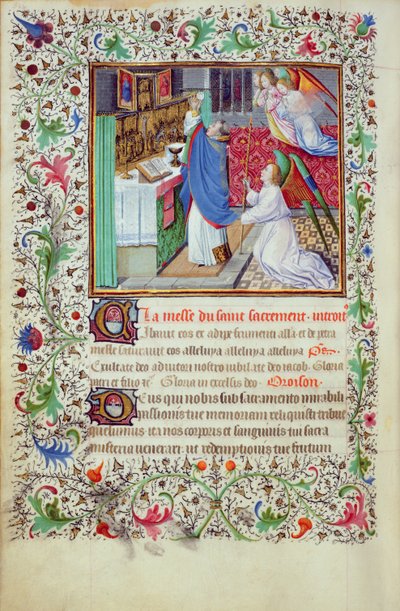 La messe du saint sacrement. introit
Cibauit eos ex adipe frumenti alla et de petra
melle saturauit eos alleluya alleluya alleluya Ps
Exultate deo adiutori nostro iubilate deo iacob. Gloria
patri et filio et Gloria in excelsis deo Oroison.
Deus qui nobis sub sacramento mirabili
passionis tue memoriam reliquisti tribue
quesumus ita nos corporis et sanguinis tui sacra
misteria venerari ut redemptionis tue fructum